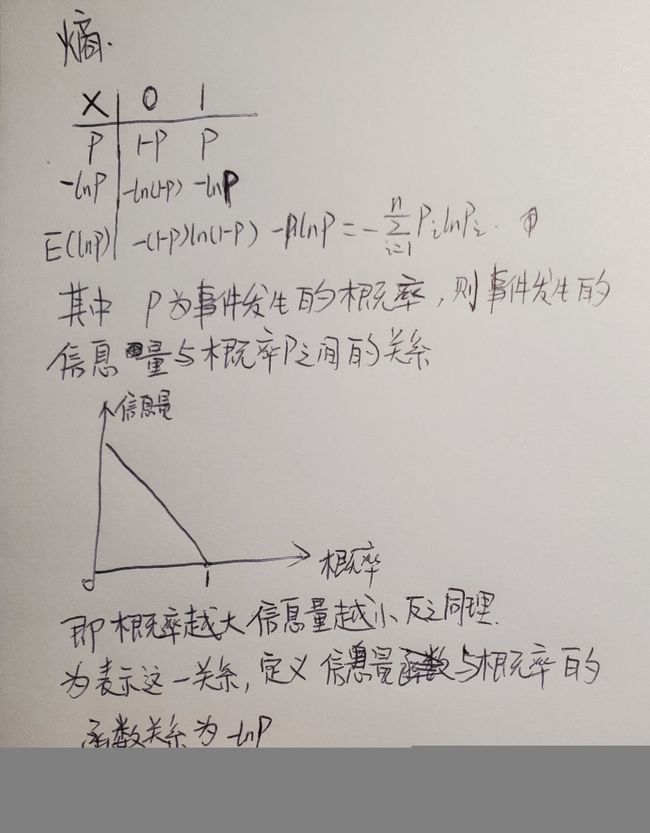 熵.
X 0 1
P 1-P P
-lnP -ln(1-P) -lnP
E(lnP) -(1-P)ln(1-P) -PlnP = -∑ⁿᵢ₌₁ PᵢlnPᵢ. ①
其中 P为事件发生的概率,则事件发生的
信息量与概率P之间的关系
信息量
概率
0 1
即概率越大信息量越小 反之同理.
为表示这一关系,定义信息量函数与概率的
函数关系为-lnP